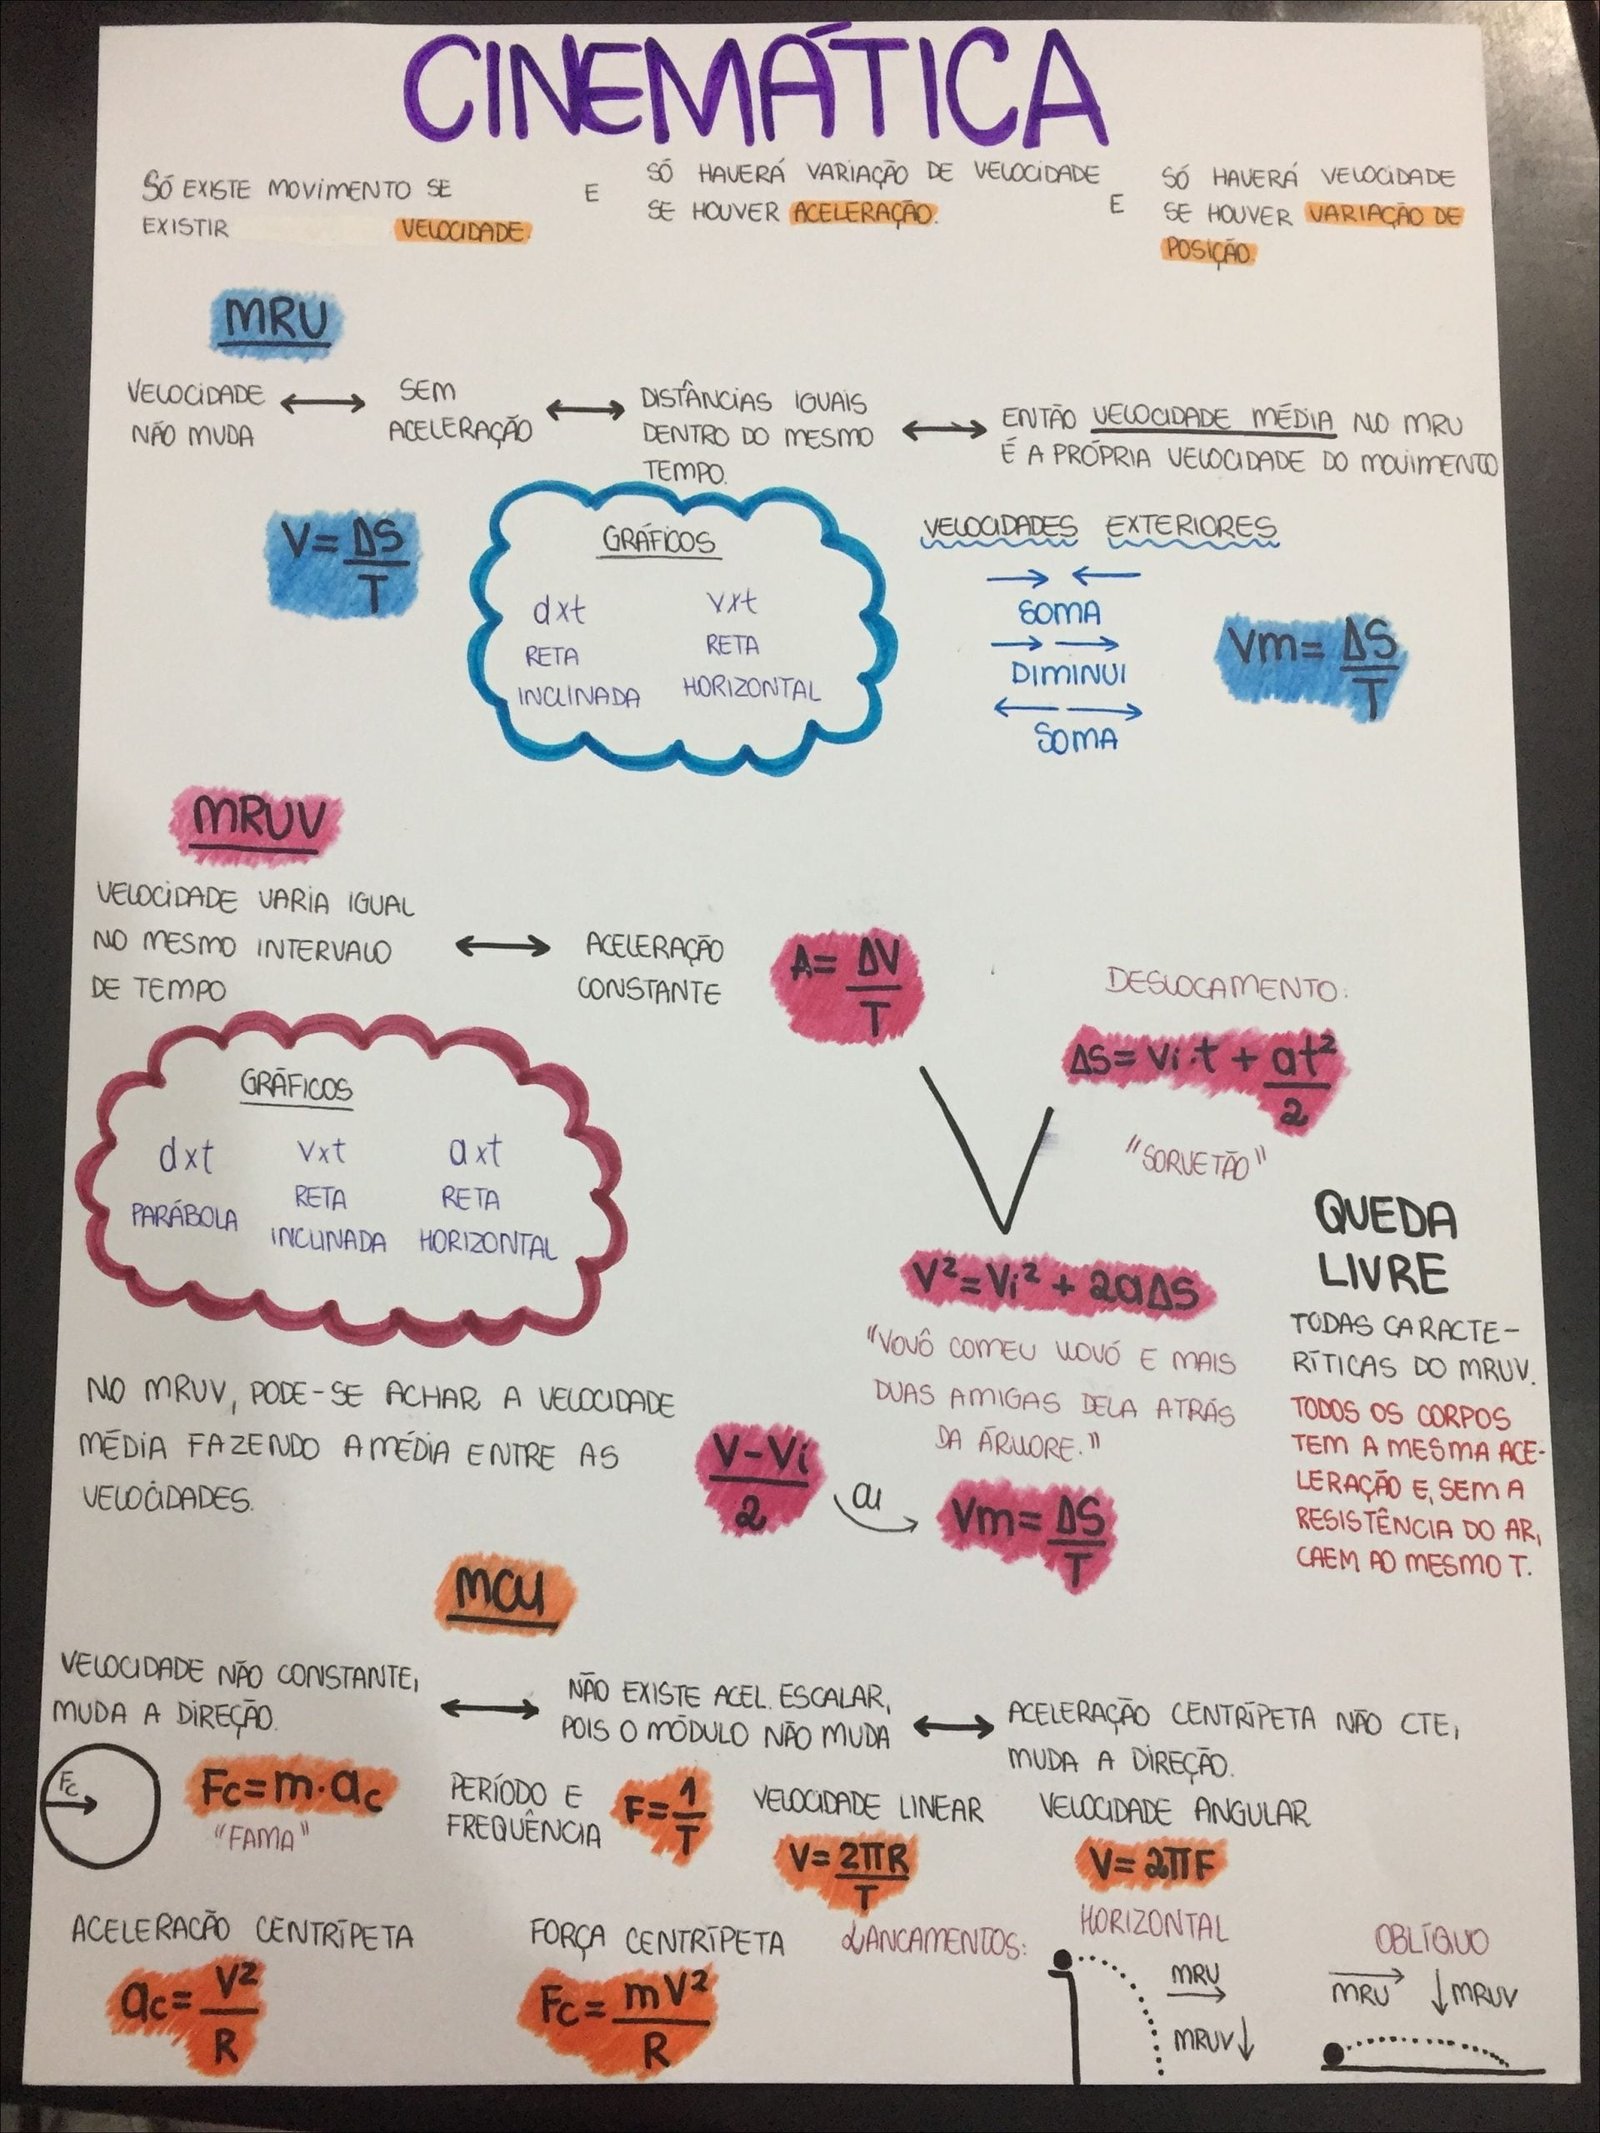 CINEMÁTICA
SÓ EXISTE MOVIMENTO SE
EXISTIR VELOCIDADE.
E
SÓ HAVERÁ VARIAÇÃO DE VELOCIDADE
SE HOUVER ACELERAÇÃO.
E
SÓ HAVERÁ VELOCIDADE
SE HOUVER VARIAÇÃO DE
POSIÇÃO.
MRU
VELOCIDADE
NÃO MUDA
SEM
ACELERAÇÃO
DISTÂNCIAS IGUAIS
DENTRO DO MESMO
TEMPO.
ENTÃO VELOCIDADE MÉDIA NO MRU
É A PRÓPRIA VELOCIDADE DO MOVIMENTO
V=ΔS/T
GRÁFICOS
dxt
RETA
INCLINADA
vxt
RETA
HORIZONTAL
VELOCIDADES EXTERIORES
→ ←
SOMA
→ →
DIMINUI
← →
SOMA
Vm=ΔS/T
MRUV
VELOCIDADE VARIA IGUAL
NO MESMO INTERVALO
DE TEMPO
ACELERAÇÃO
CONSTANTE
A=ΔV/T
DESLOCAMENTO:
ΔS=Vi.t + at²/2
"SORVETÃO"
GRÁFICOS
dxt
PARÁBOLA
vxt
RETA
INCLINADA
axt
RETA
HORIZONTAL
V²=Vi²+2aΔS
"VOVÔ COMEU VOVÓ E MAIS
DUAS AMIGAS DELA ATRÁS
DA ÁRVORE."
QUEDA
LIVRE
TODAS CARACTE-
RÍTICAS DO MRUV.
TODOS OS CORPOS
TEM A MESMA ACE-
LERAÇÃO E, SEM A
RESISTÊNCIA DO AR,
CAEM AO MESMO T.
NO MRUV, PODE-SE ACHAR A VELOCIDADE
MÉDIA FAZENDO A MÉDIA ENTRE AS
VELOCIDADES.
V-Vi/2
OU
Vm=ΔS/T
MCU
VELOCIDADE NÃO CONSTANTE,
MUDA A DIREÇÃO.
NÃO EXISTE ACEL. ESCALAR,
POIS O MÓDULO NÃO MUDA
ACELERAÇÃO CENTRÍPETA NÃO CTE,
MUDA A DIREÇÃO.
Fc
Fc=m.ac
"FAMA"
PERÍODO E
FREQUÊNCIA
F=1/T
VELOCIDADE LINEAR
V=2πR/T
VELOCIDADE ANGULAR
V=2πF
ACELERACÃO CENTRÍPETA
ac=V²/R
FORÇA CENTRÍPETA
Fc=mV²/R
LANCAMENTOS:
HORIZONTAL
MRU
MRUV
OBLÍQUO
MRU
MRUV